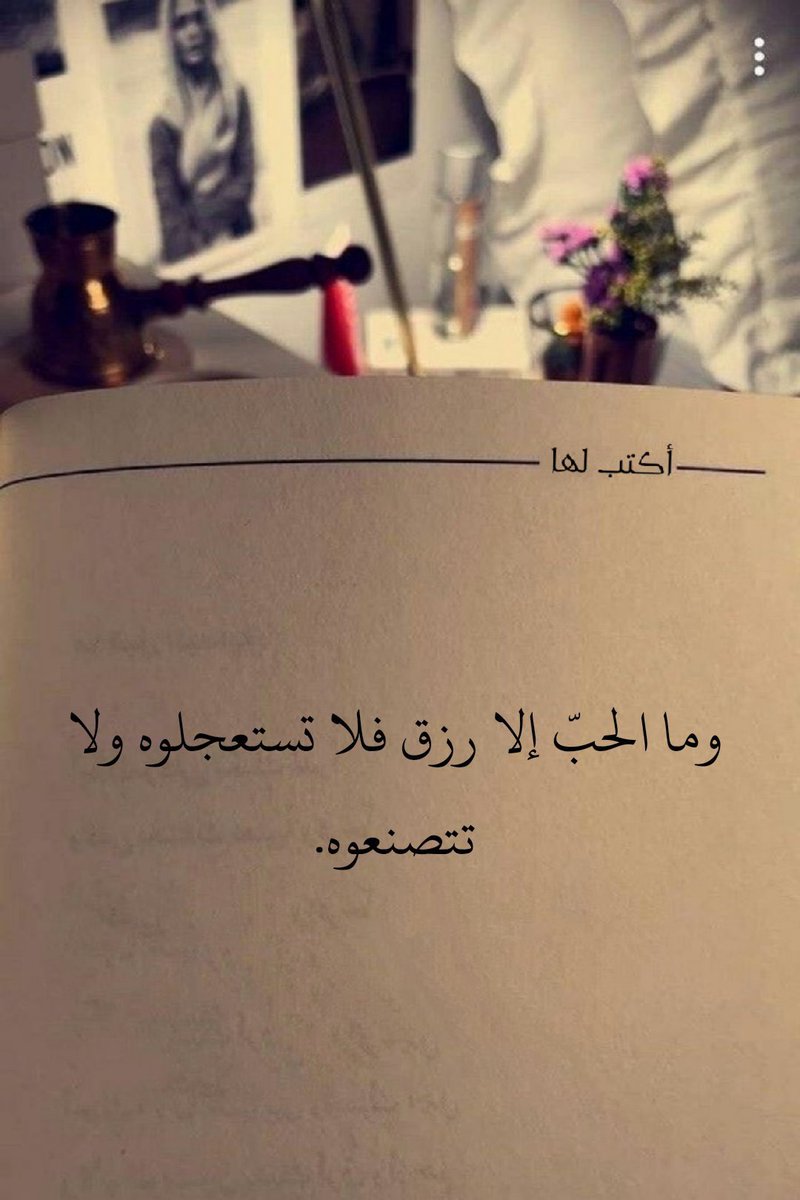 أكتب لها
وما الحبّ إلا رزق فلا تستعجلوه ولا
تتصنعوه.